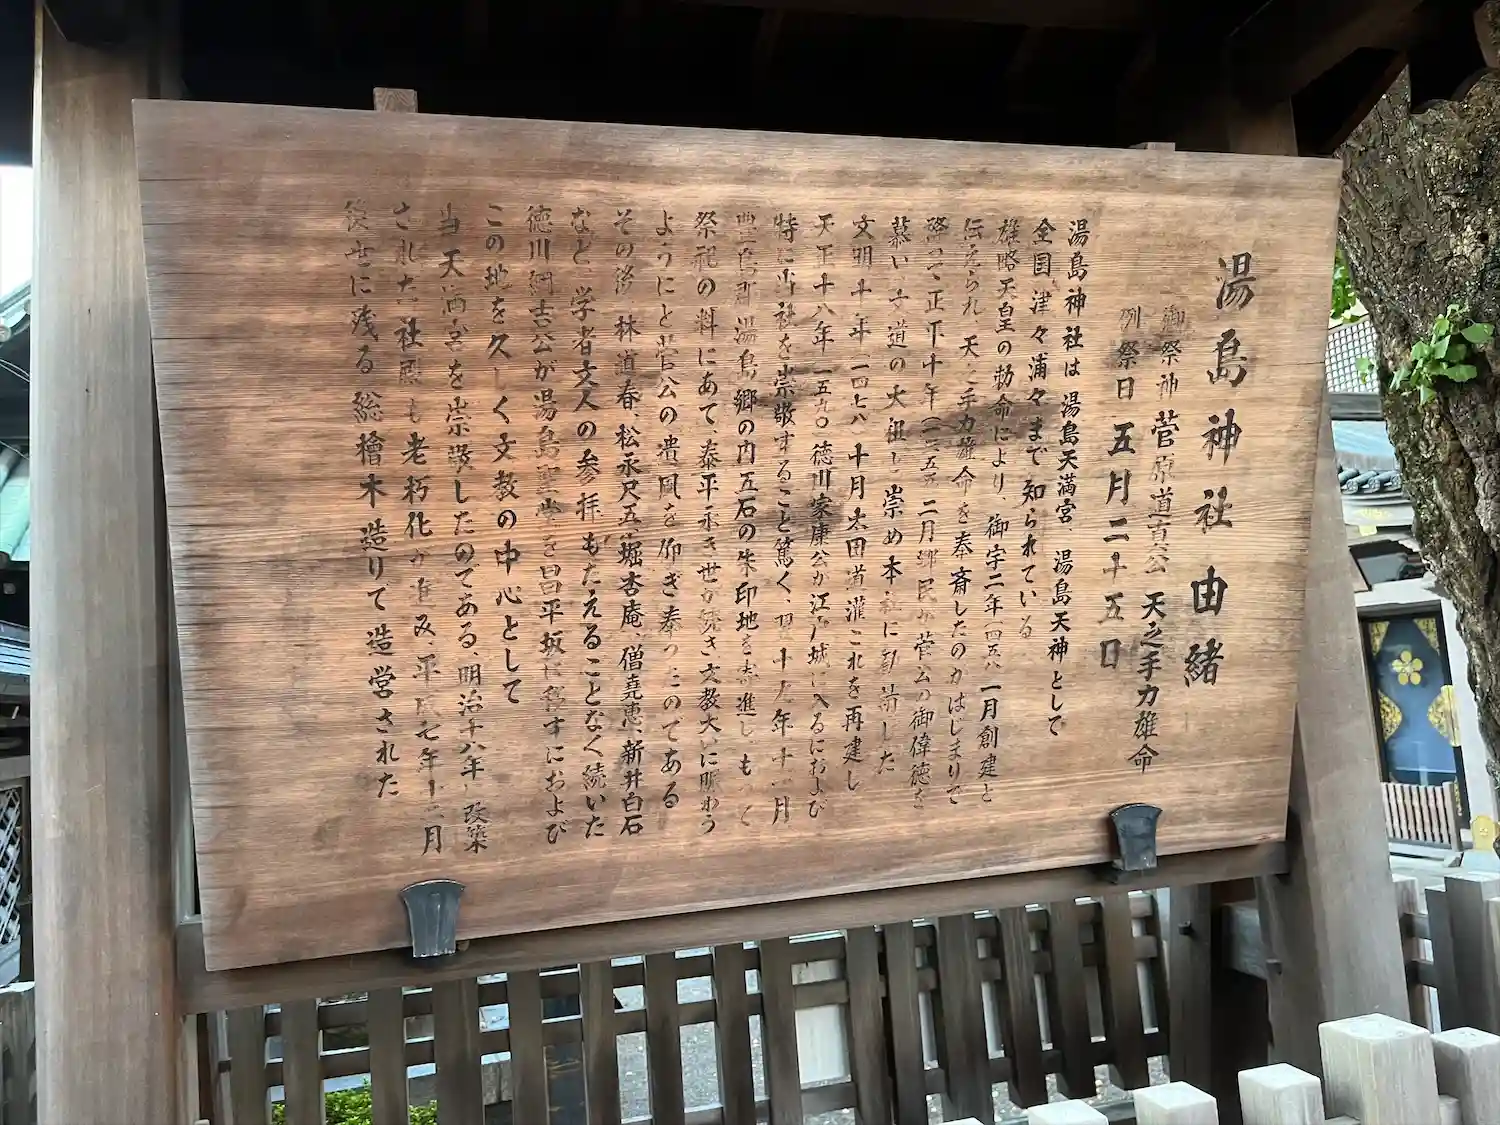 湯島神社由緒
御祭神 菅原道真公 天之手力雄命
例祭日 五月二十五日
湯島神社は 湯島天満宮、湯島天神として
全国 津々浦々まで知られている
雄略天皇の勅命により、御宇二年(四五八)一月創建と
伝えられ 天之手力雄命を奉斎したのがはじまりで
降って正平十年(一三五五)二月郷民が菅公の御偉徳を
慕い 文道の大祖と崇め本社に勧請した
文明十年(一四七八)十月太田道灌これを再建し
天正十八年(一五九〇)徳川家康公が江戸城に入るにおよび
特に当社を崇敬すること篤く、翌十九年十一月
豊島郡湯島郷の内五石の朱印地を寄進し もって
祭祀の料にあて、泰平永き世が続き文教大いに賑わう
ようにと菅公の遺風を仰ぎ奉ったのである
その後、林道春、松永尺五、堀杏庵、僧堯恵、新井白石
など、学者文人の参拝もたえることなく続いた
徳川綱吉公が湯島聖堂を昌平坂に移すにおよび
この地を久しく文教の中心として
当天満宮を崇敬したのである、明治十八年に改築
された社殿も老朽化が進み平成七年十二月
後世に残る総檜木造りで造営された